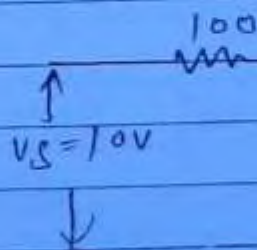 100
VS=10V